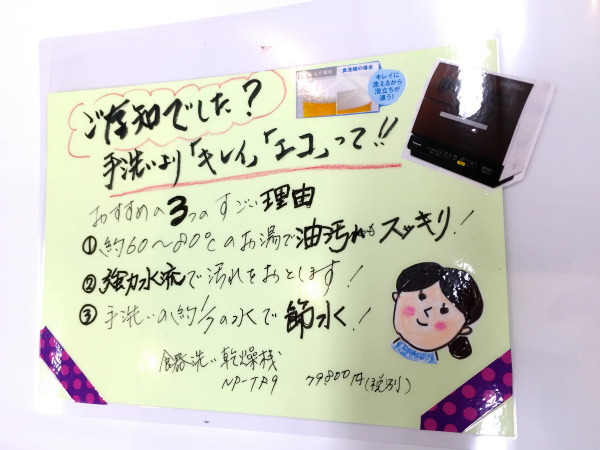 ご存知でした?
食洗機の場合
キレイに
洗えるから
泡立ちが
違う!
手洗いより「キレイ」「エコ」って!!
おすすめの3つのすごい理由
①約60~80℃のお湯で油汚れもスッキリ!
②強力水流で汚れをおとします!
③手洗いの約1/7の水で節水!
食器洗い乾燥機
NP-TR9 79800円(税別)